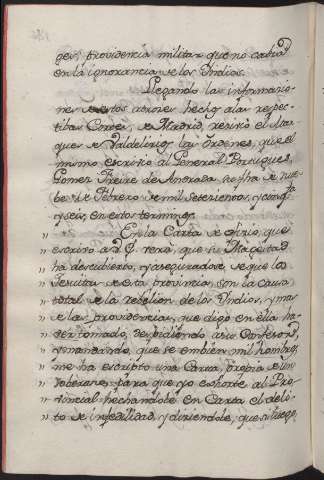 ges, providencia militar que no cabia
en la ignorancia de los Yndios.
Llegando las informacio-
nes de estos errores hechos a las respec-
tibas Cortes, de Madrid, recivió el Mar-
ques de Valdelirios las órdenes, que el
mismo escrivió al General Portugues,
Gomez Freire de Andrada su fha de nue-
be de Febrero de mil setecientos, y cinqta
y seis, en estos terminos.
" En la Carta de oficio, que
" escrivo a V. E. verá, que su Magestad
" ha descubierto, y aseguradose, de que los
" Jesuitas de esta provincia, son la causa
" total de la rebelion de los Yndios, y mas
" de las providencias, que digo en ella ha-
" ver tomado, despidiendo a su Confesor,
" y mandando, que se embien mil hombres,
" me ha escripto una Carta, propia de un
" Soberano, para que yo exhorte al Pro-
" vincial hechandole en Cara el deli-
" to de infidelidad, y diciendole, que si luego,